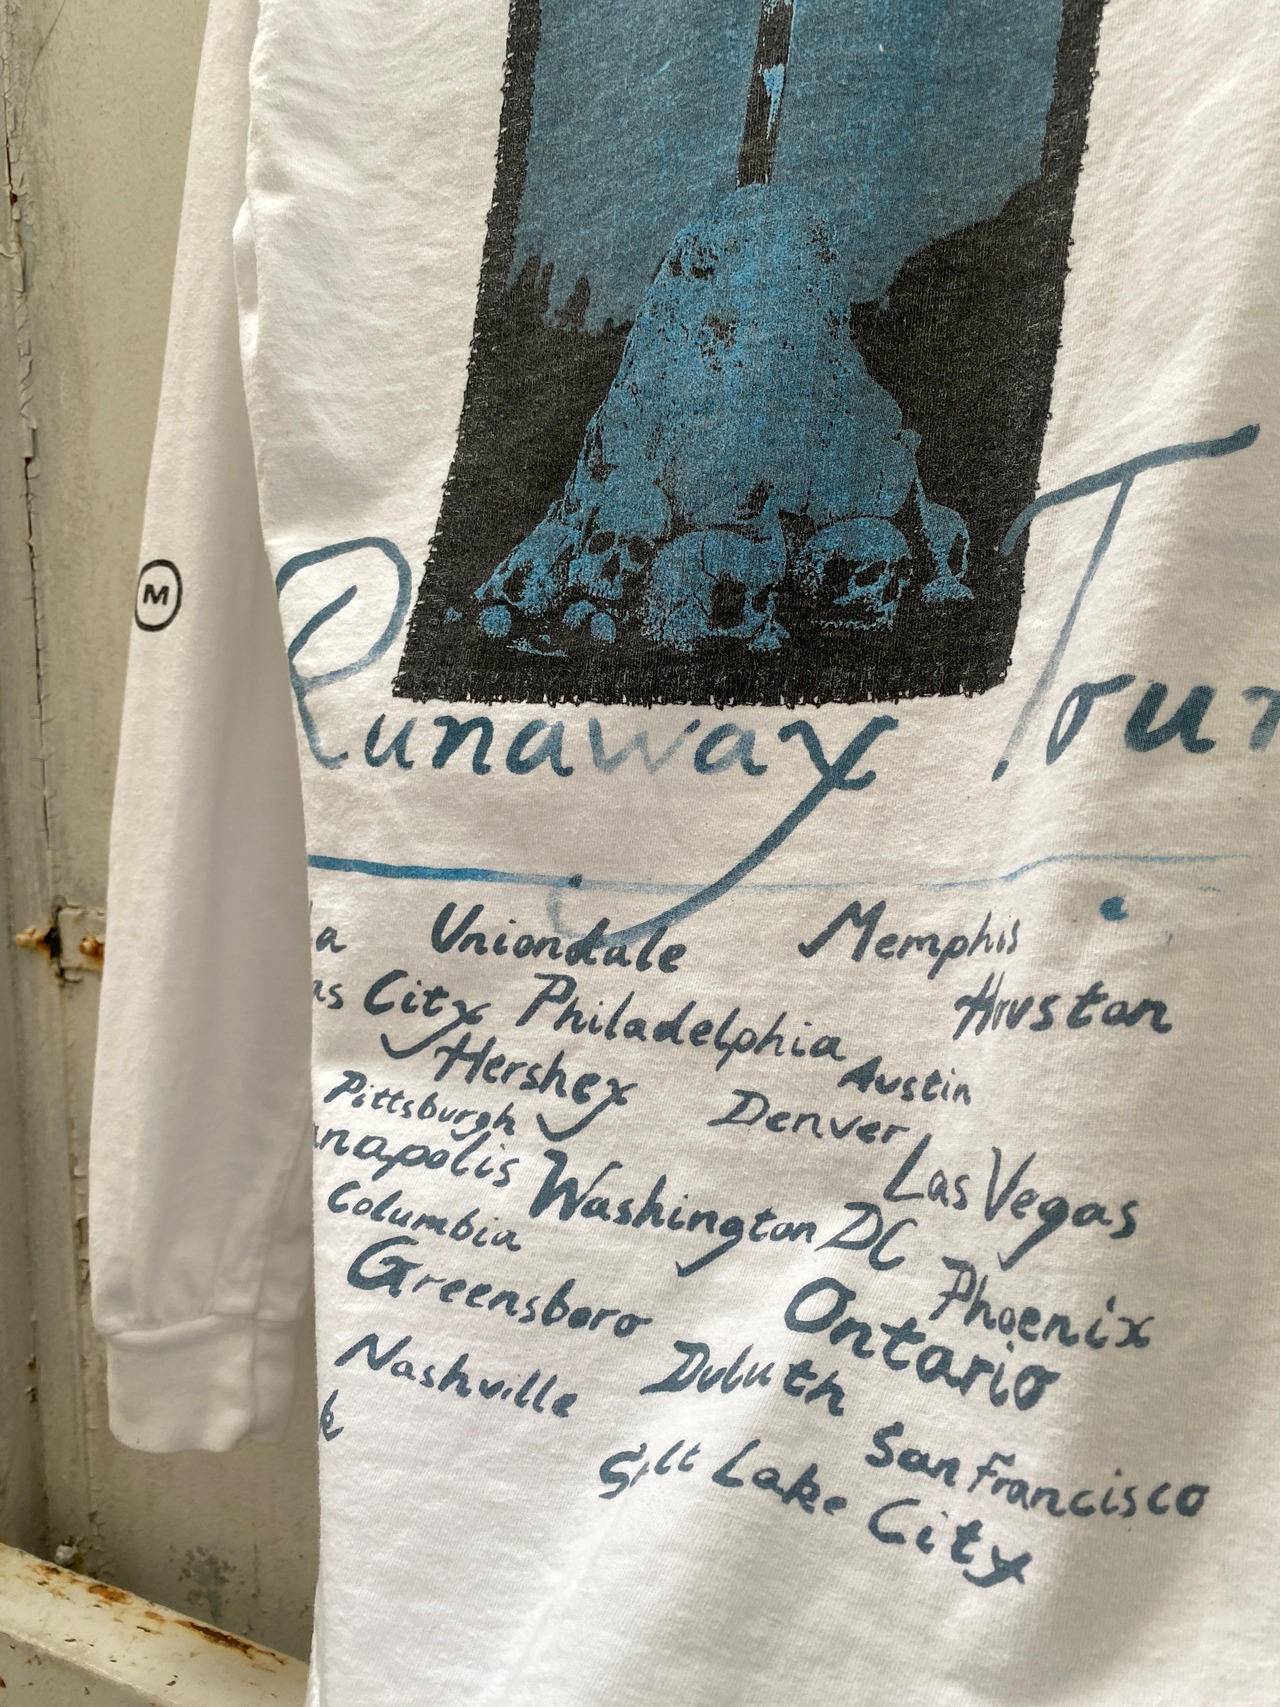 M
Runaway Tour
Uniondale
Memphis
City
Philadelphia
Houston
Hershey
Austin
Pittsburgh
Denver
Las Vegas
Washington DC
Columbia
Phoenix
Greensboro
Ontario
Nashville
Duluth
San Francisco
Salt Lake City